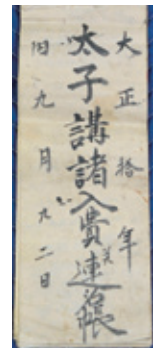 大正拾年
太子講諸入費連名帳
旧九月廿二日